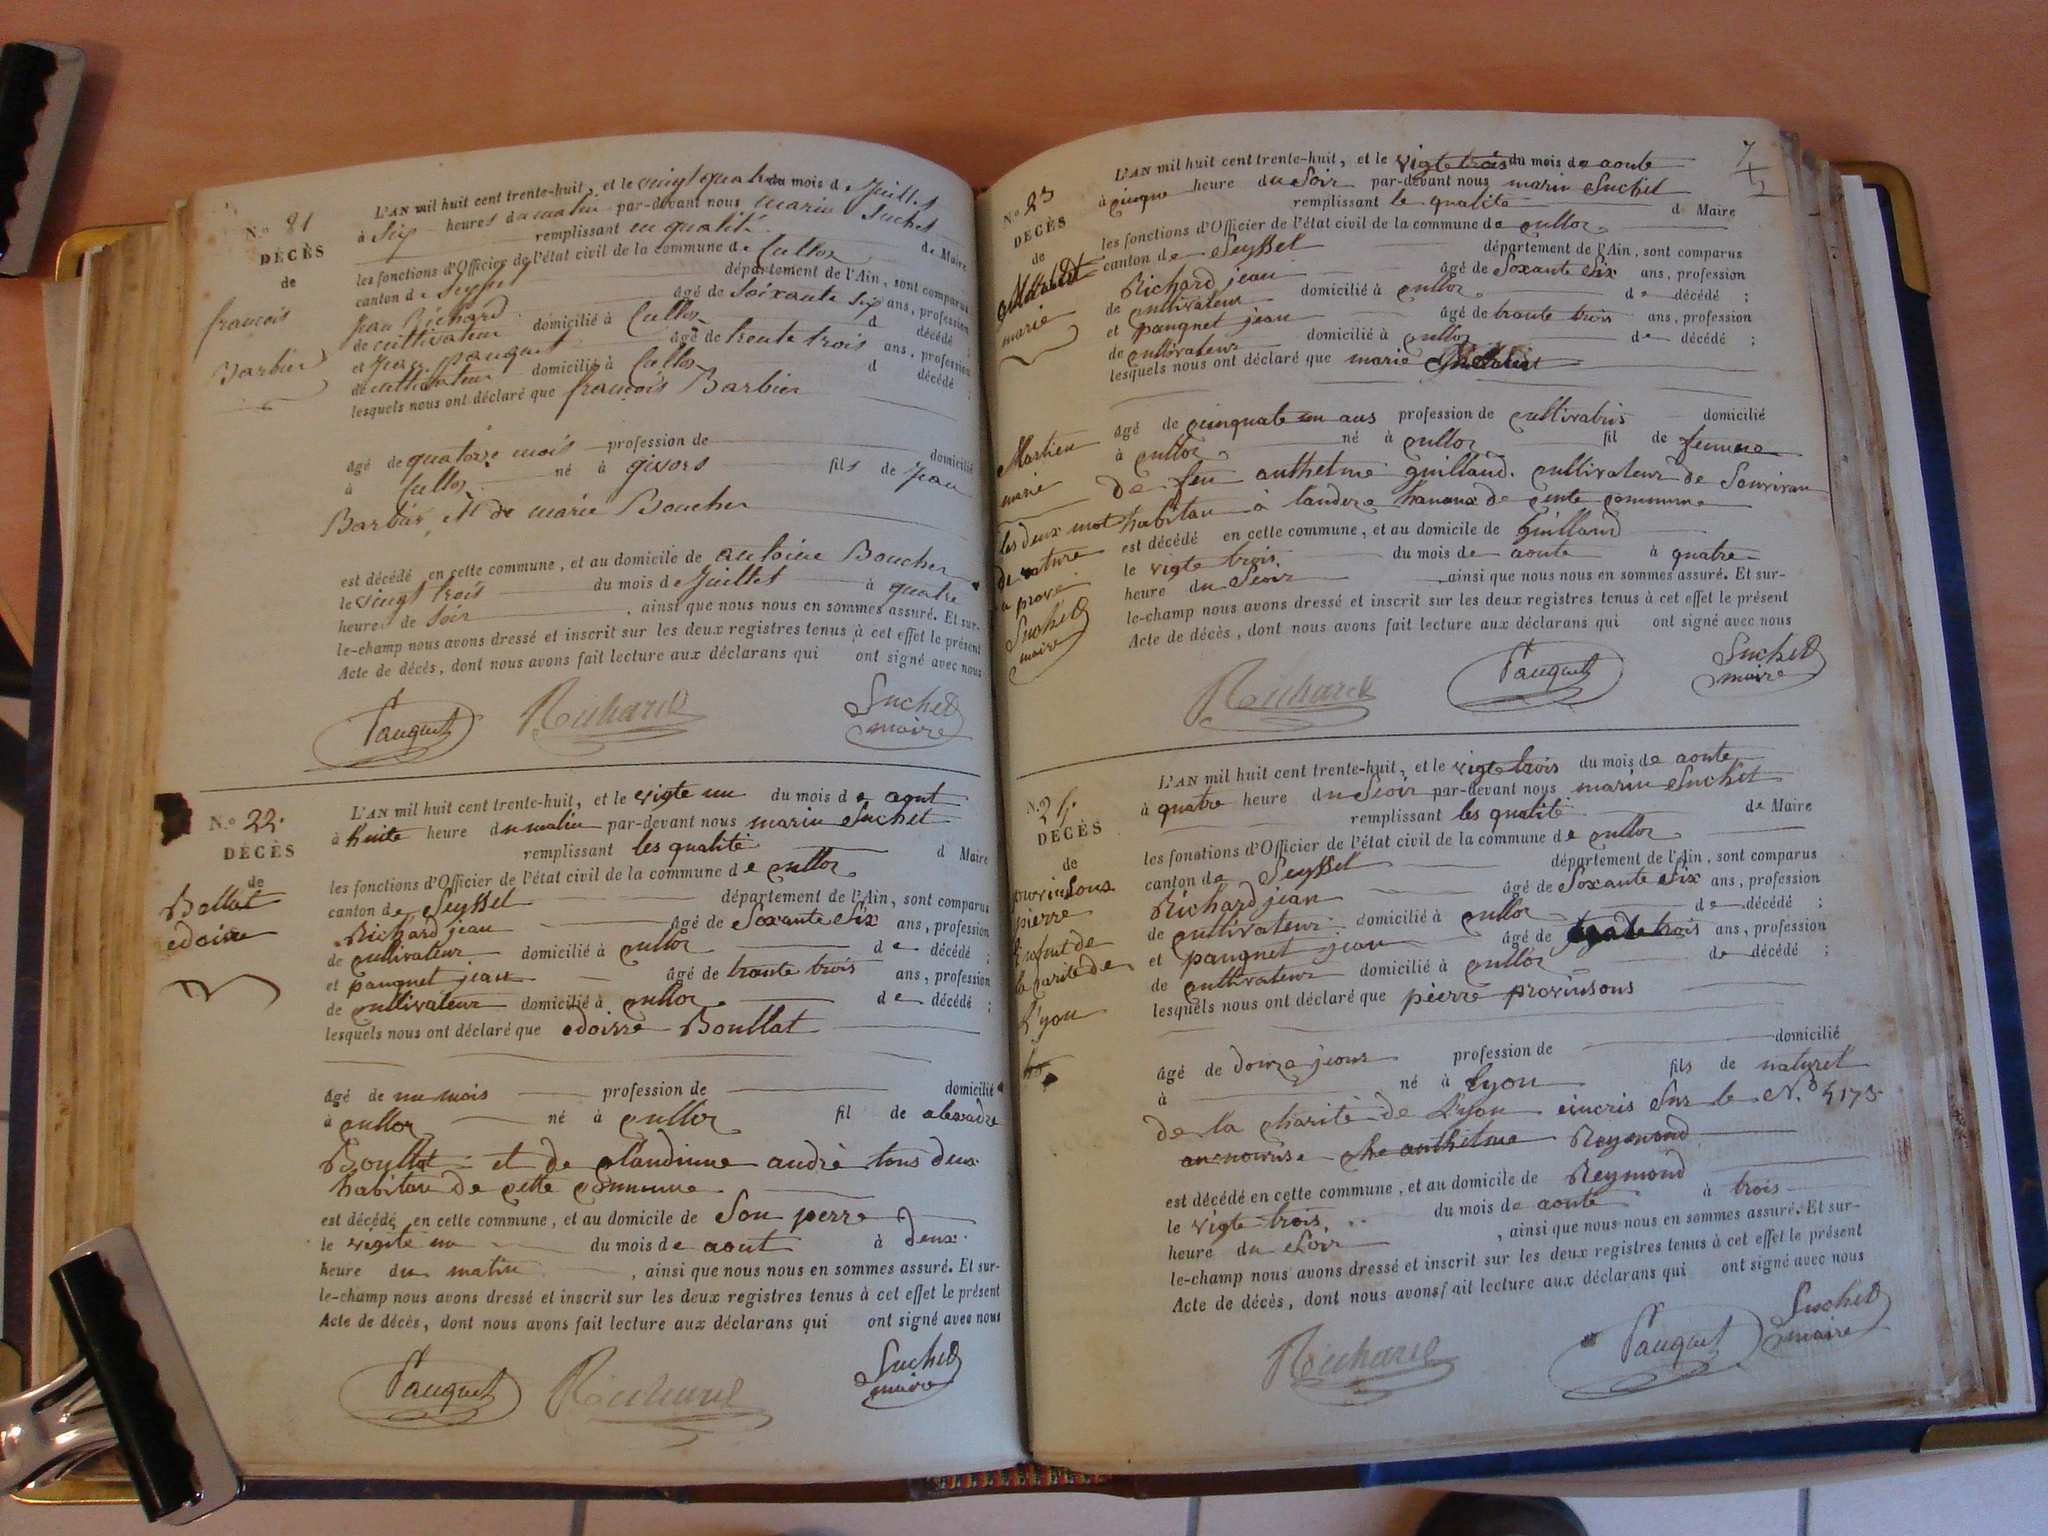 N.º 21
DÉCÈS
de
françois
Barbier
L'AN mil huit cent trente-huit, et le vingt quatre du mois de Juillet
à Six heures du matin par-devant nous marin Suchet
remplissant en qualité de Maire
les fonctions d'Officier de l'état civil de la commune de Culloz
canton de Seyssel département de l'Ain, sont comparus
Jean Richard âgé de Soixante Six ans, profession
de cultivateur domicilié à Culloz d décédé ;
et Jean pauquet âgé de trente trois ans, profession
de cultivateur domicilié à Culloz d décédé ;
lesquels nous ont déclaré que françois Barbier
âgé de quatorze mois profession de domicilié
à Culloz né à givors fils de Jean
Barbier, et de marie Boucher
est décédé en cette commune, et au domicile de antoine Boucher
le vingt trois du mois de Juillet à quatre
heure de Soir, ainsi que nous nous en sommes assuré. Et sur-
le-champ nous avons dressé et inscrit sur les deux registres tenus à cet effet le présent
Acte de décès, dont nous avons fait lecture aux déclarans qui ont signé avec nous
Pauquet Richard Suchet
maire
N.º 22.
DÉCÈS
de
Bollat
edoire
L'AN mil huit cent trente-huit, et le vigte un du mois de aout
à huite heure du matin par-devant nous marin Suchet
remplissant les qualité d Maire
les fonctions d'Officier de l'état civil de la commune de culloz
canton de Seyssel département de l'Ain, sont comparus
Richard jean âgé de Soxante Six ans, profession
de cultivateur domicilié à culloz de décédé ;
et pauquet jean âgé de trante trois ans, profession
de cultivateur domicilié à culloz de décédé ;
lesquels nous ont déclaré que edoirre Boullat
âgé de un mois profession de domicilié
à culloz né à culloz fil de alexadre
Boullat et de claudinne andré tous deux
habitan de cette commune
est décédé en cette commune, et au domicile de Son perre
le vigte un du mois de aout à deux
heure du matin, ainsi que nous nous en sommes assuré. Et sur-
le-champ nous avons dressé et inscrit sur les deux registres tenus à cet effet le présent
Acte de décès, dont nous avons fait lecture aux déclarans qui ont signé avec nous
Pauquet Richard Suchet
maire
7
N.º 23
DÉCÈS
de
marie
L'AN mil huit cent trente-huit, et le vigte trois du mois de aoute
à cinque heure du Soir par-devant nous marin Suchet
remplissant le qualité d Maire
les fonctions d'Officier de l'état civil de la commune de culloz
canton de Seyssel département de l'Ain, sont comparus
Richard jean âgé de Soxante Six ans, profession
de cultivateur domicilié à culloz de décédé ;
et pauquet jean âgé de trante trois ans, profession
de cultivateur domicilié à culloz de décédé ;
lesquels nous ont déclaré que marie
Martien
marie
les deux mot
de rature
a prové
Suchet
maire
âgé de cinquate un ans profession de domicilié
à culloz né à culloz fil de femme
de feu anthelme guilland. cultivateur de Sonvivan
habitan à landeze hamaux de cente commune
est décédé en cette commune, et au domicile de guilland
le vigte trois du mois de aoute à quatre
heure du Soir, ainsi que nous nous en sommes assuré. Et sur-
le-champ nous avons dressé et inscrit sur les deux registres tenus à cet effet le présent
Acte de décès, dont nous avons fait lecture aux déclarans qui ont signé avec nous
Richard Pauquet Suchet
maire
N.º 24
DÉCÈS
de
provinsons
pierre
Enfent de
la carité de
Lyon
L'AN mil huit cent trente-huit, et le vigte trois du mois de aoute
à quatre heure du Soir par-devant nous marin Suchet
remplissant les qualité de Maire
les fonctions d'Officier de l'état civil de la commune de culloz
canton de Seyssel département de l'Ain, sont comparus
Richard jean âgé de Soxante Six ans, profession
de cultivateur domicilié à culloz de décédé ;
et pauquet jean âgé de trois ans, profession
de cultivateur domicilié à culloz de décédé ;
lesquels nous ont déclaré que pierre provinsons
âgé de douze jeour profession de domicilié
à né à Lyon fils de naturel
de la charité de Lyon eincris Sur le N.º 4175
en nourise che anthelme Reymond
est décédé en cette commune, et au domicile de Reymond
le vigte trois du mois de aoute à trois
heure du Soir, ainsi que nous nous en sommes assuré. Et sur-
le-champ nous avons dressé et inscrit sur les deux registres tenus à cet effet le présent
Acte de décès, dont nous avons fait lecture aux déclarans qui ont signé avec nous
Richard Pauquet Suchet
maire